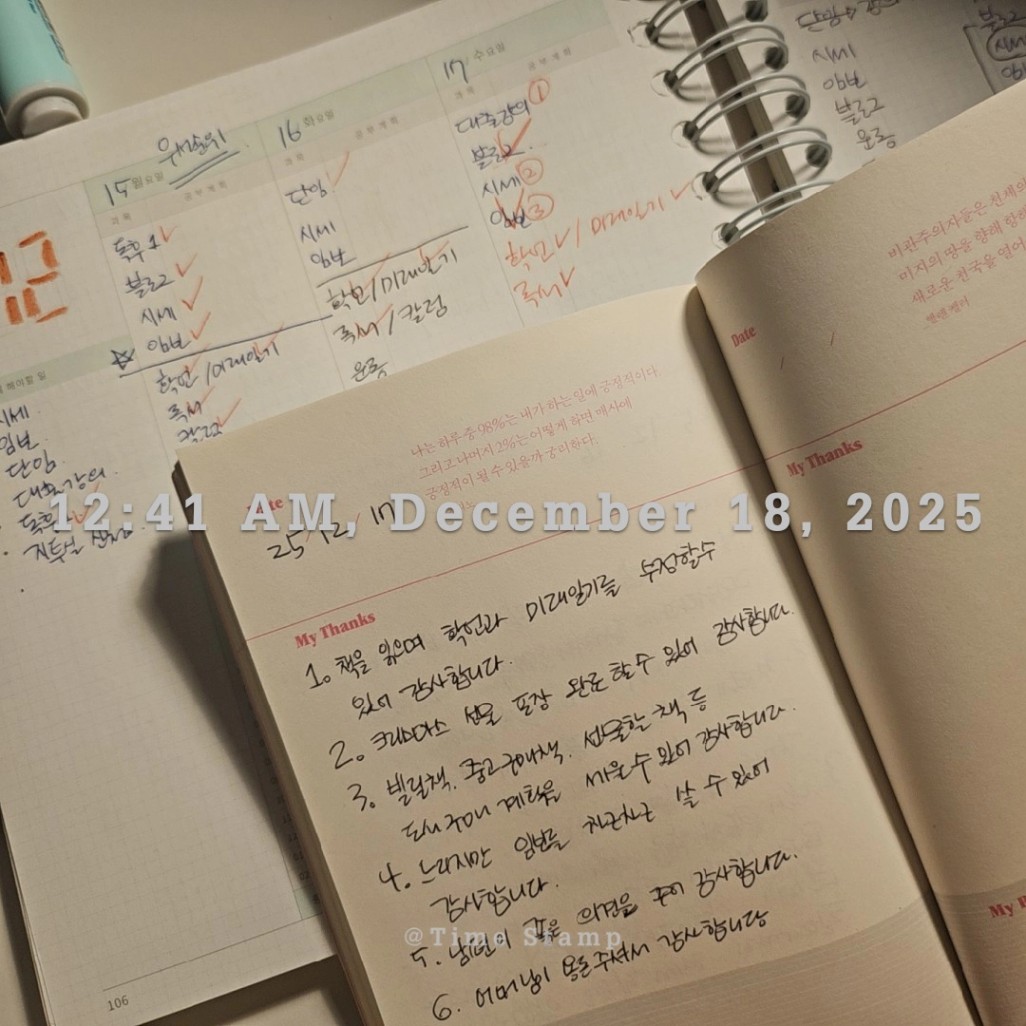 우선순위
15 일요일
공부계획
과목
독후 1
블로그
시세
임보
확언/미래일기
독서
칼럼
16 화요일
공부계획
과목
단임
시세
임보
확언/미래일기
독서/칼럼
운동
17 수요일
공부계획
과목
대출강의 ①
블로그
시세 ②
임보 ③
확언 / 미래일기
독서
해야할 일
시세
임보
단임
대출강의
독후
106
시세
임보
블로그
운동
나는 하루 중 98%는 내가 하는 일에 긍정적이다.
그리고 나머지 2%는 어떻게 하면 매사에
긍정적이 될 수 있을까 궁리한다.
Date
25 / 12 / 17
My Thanks
1. 책을 읽으며 확언과 미래일기를 수정할 수
있어 감사합니다.
2. 크리스마스 선물 포장 완료할 수 있어 감사합니다.
3. 빌릴책, 중고구매책, 선물할 책 등
도서 구매 계획을 세울 수 있어 감사합니다.
4. 느리지만 임보를 차근차근 쓸 수 있어
감사합니다.
5. 남편이 좋은 의견을 주어 감사합니다.
6. 어머님이 용돈주셔서 감사합니다
비관주의자들은 천체의
미지의 땅을 향해 항해
새로운 천국을 열어
헬렌 켈러
Date / /
My Thanks
12:41 AM, December 18, 2025
@Time Stamp